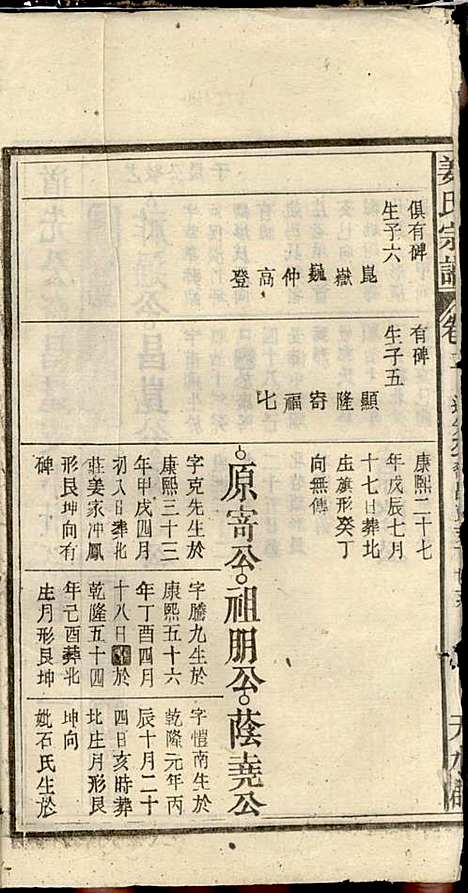 姜氏宗譜
卷
俱有碑
生子六
崑
嶽
巍
仲
高
登
有碑
生子五
顯
隆
寄
福
康熙二十七
年戊辰七月
十七日葬北
庄旗形癸丁
向無傳
原寄公
字克先生於
康熙三十三
年甲戌四月
初入日葬北
莊姜家冲鳳
形艮坤向有
碑
祖朋公
字騰九生於
康熙五十六
年丁酉四月
十八日
於
乾隆五十四
年己酉葬北
生月形艮坤
蔭堯公
字愷南生於
乾隆元年丙
辰十月二十
四日亥時葬
北庄月形艮
坤向
妣石氏生於